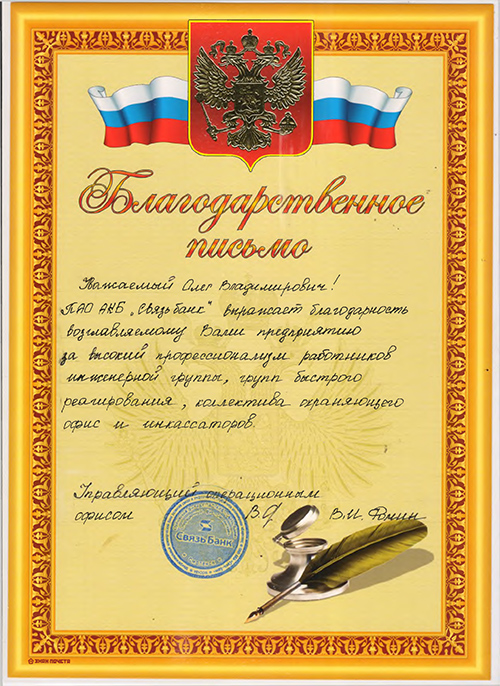 Благодарственное
письмо
Уважаемый Олег Владимирович!
ПАО АКБ „Связь-банк" выражает благодарность
возглавляемому Вами предприятию
за высокий профессионализм работников
инженерной группы, групп быстрого
реагирования, коллектива охраняющего
офис и инкассаторов.
Управляющий операционным
офисом В.И. Фомин
СВЯЗЬ БАНК
ЗНАК ПОЧЕТА